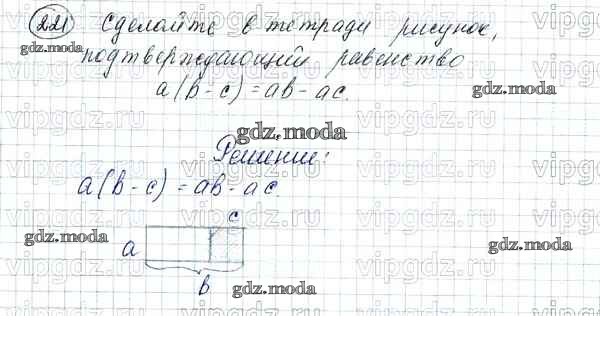 221 Сделайте в тетради рисунок,
подтверждающий равенство
a(b-c)=ab-ac.
Решение:
a(b-c)=ab-ac.
c
a
b
gdz.moda
gdz.moda
gdz.moda
gdz.moda
gdz.moda
gdz.moda
vipgdz.vipgdz.vipgdz.